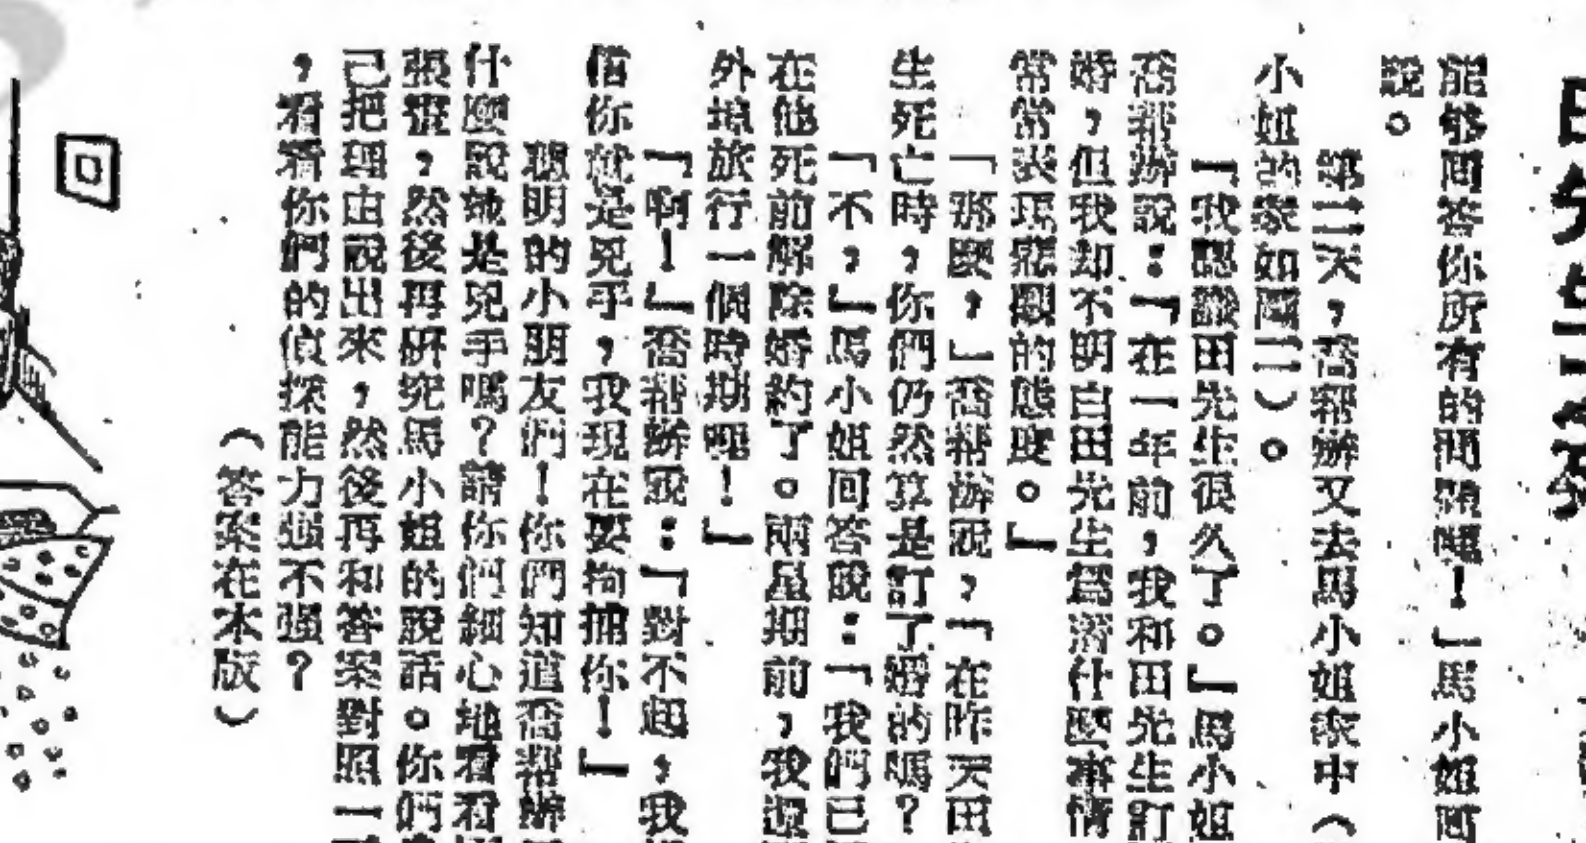 能够回答你所有的問題哩！」馬小姐回
說。
第二天，喬幫辦又去馬小姐家中（
小姐的家如圖二）。
「我認識田先生很久了。」馬小姐
喬幫辦說：「在一年前，我和田先生訂
婚，但我却不明白田先生爲着什麼事情
常常表現悲觀的態度。」
「那麼，」喬幫辦說，「在昨天田
生死亡時，你們仍然算是訂了婚的嗎？
「不，」馬小姐回答說：「我們已
在他死前解除婚約了。兩星期前，我還
外埠旅行一個時期哩！」
「啊！」喬幫辦說：「對不起，我
信你就是兇手，我現在要拘捕你！」
聰明的小朋友們！你們知道喬幫辦
什麼說她是兇手嗎？請你們細心地看看
張畫，然後再研究馬小姐的說話。你們
己把理由說出來，然後再和答案對照一
，看看你們的偵探能力強不強？
（答案在本版）